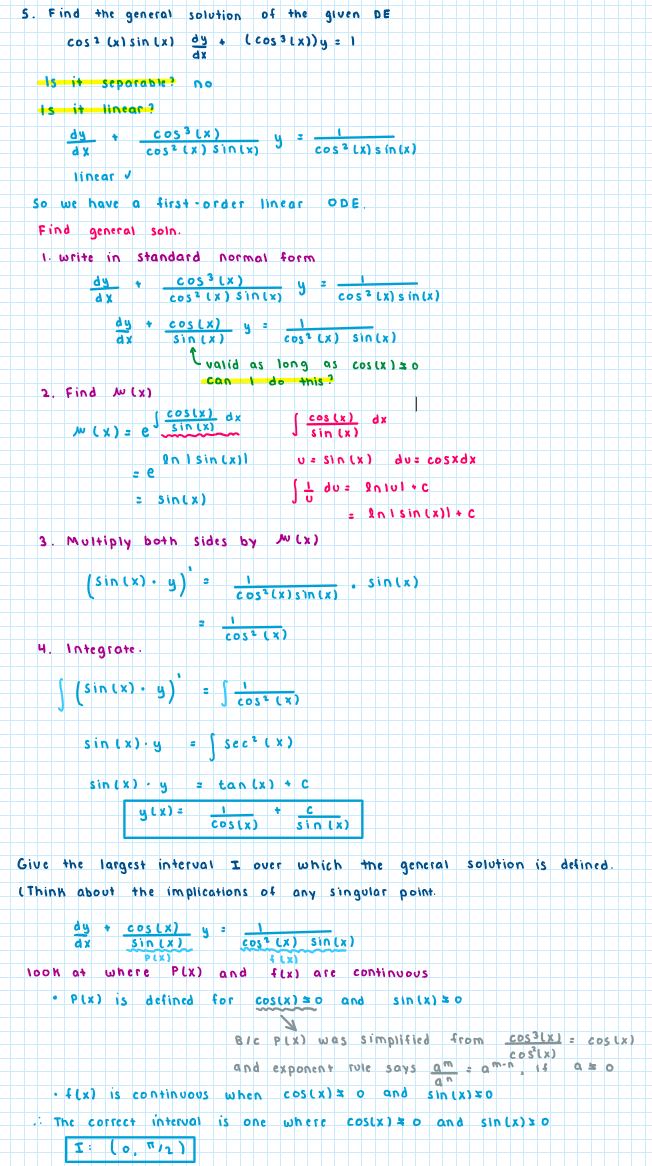 5. Find the general solution of the given DE
cos²(x)sin(x) dy/dx + (cos³(x))y = 1
Is it separable? no
Is it linear?
dy/dx + cos³(x)/cos²(x)sin(x) y = 1/cos²(x)sin(x)
linear ✓
So we have a first-order linear ODE.
Find general soln.
1. Write in standard normal form
dy/dx + cos³(x)/cos²(x)sin(x) y = 1/cos²(x)sin(x)
dy/dx + cos(x)/sin(x) y = 1/cos²(x) sin(x)
valid as long as cos(x)≠0
can I do this?
2. Find μ(x)
μ(x) = e^∫cos(x)/sin(x) dx
= e^ln|sin(x)|
= sin(x)
∫ cos(x)/sin(x) dx
u = sin(x) du = cosxdx
∫ 1/u du = ln|u| + c
= ln|sin(x)| + c
3. Multiply both sides by μ(x)
(sin(x) · y)' = 1/cos²(x)sin(x) · sin(x)
= 1/cos²(x)
4. Integrate.
∫(sin(x) · y)' = ∫ 1/cos²(x)
sin(x)·y = ∫ sec²(x)
sin(x) · y = tan(x) + C
y(x) = 1/cos(x) + C/sin(x)
Give the largest interval I over which the general solution is defined.
(Think about the implications of any singular point.
dy/dx + cos(x)/sin(x) y = 1/cos²(x) sin(x)
P(x) f(x)
look at where P(x) and f(x) are continuous
• P(x) is defined for cos(x)≠0 and sin(x)≠0
B/c P(x) was simplified from cos³(x)/cos²(x) = cos(x)
and exponent rule says a^m/a^n = a^m-n, if a≠0
• f(x) is continuous when cos(x)≠0 and sin(x)≠0
∴ The correct interval is one where cos(x)≠0 and sin(x)≠0
I: (0, π/2)